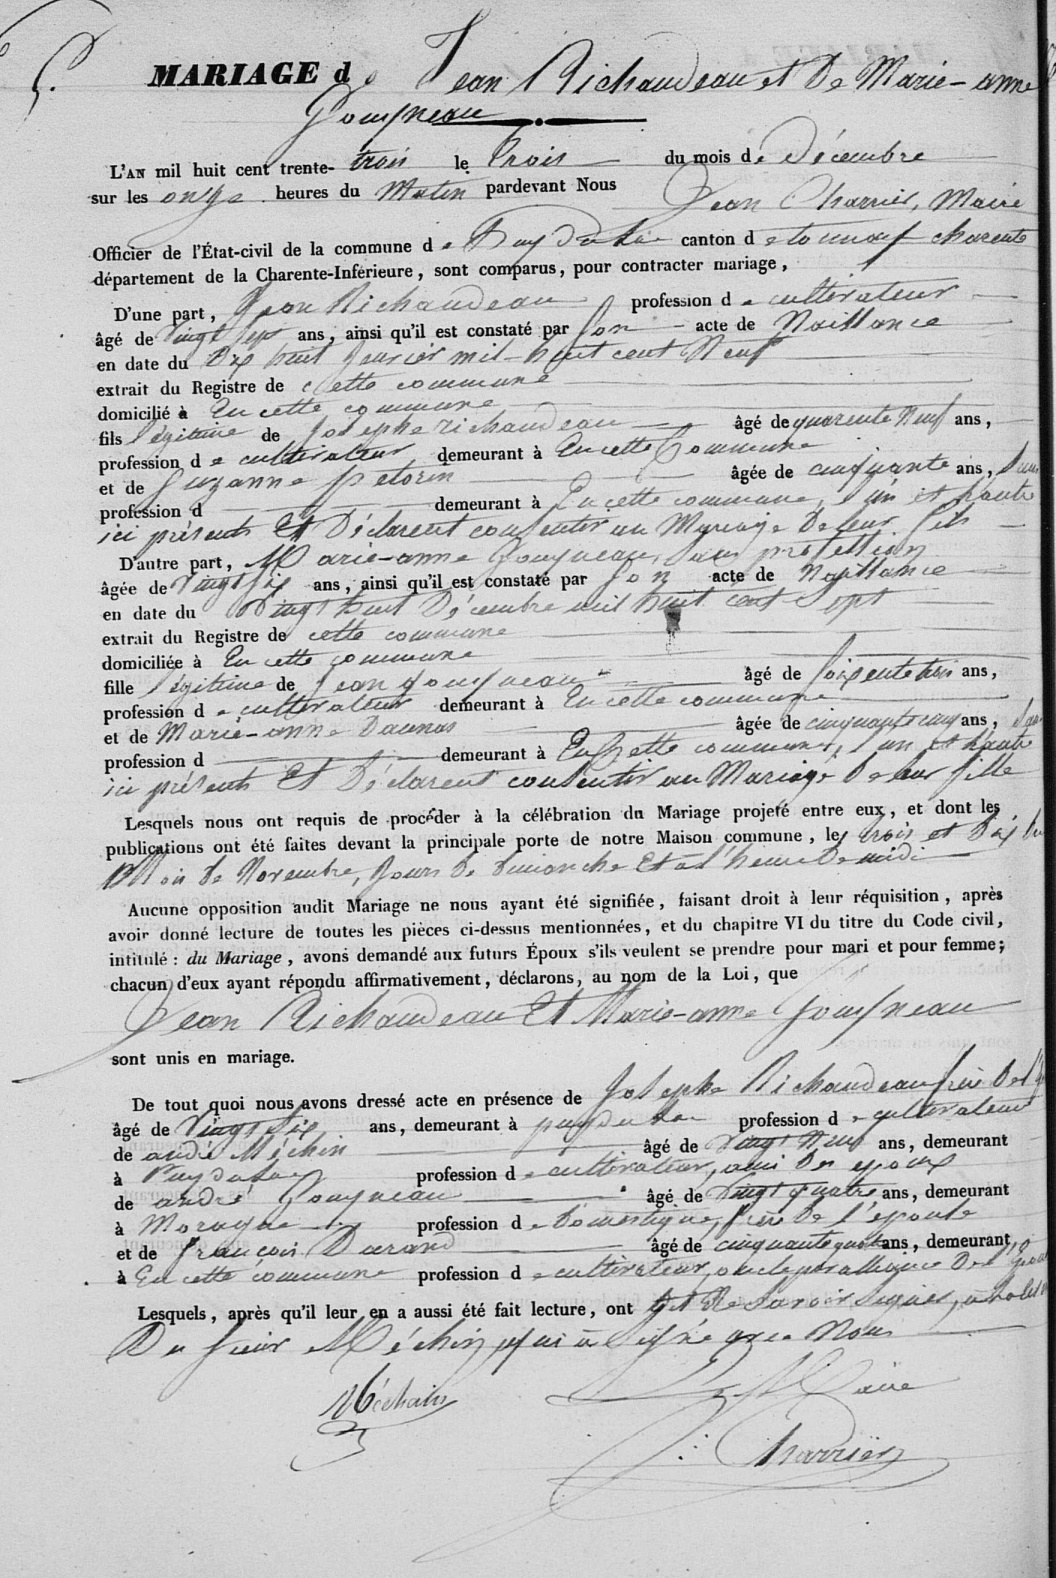 5.
MARIAGE de Jean Richaudeau et De Marie-anne
Gouyneau
L'AN mil huit cent trente-trois le Trois du mois de Décembre
sur les onze heures du Matin pardevant Nous Jean Charrier, Maire
Officier de l'État-civil de la commune de Puydulac canton de tonnay charente
département de la Charente-Inférieure, sont comparus, pour contracter mariage,
D'une part, Jean Richaudeau profession de cultivateur
âgé de Vingt Sept ans, ainsi qu'il est constaté par Son acte de Naissance
en date du Dix huit Janvier mil-huit cent Neuf
extrait du Registre de cette commune
domicilié à En cette commune
fils légitime de Josephe richaudeau âgé de quarente Neuf ans,
profession de cultivateur demeurant à En cette Commune
et de Suzanne petorin âgée de cinquante ans,
profession d demeurant à En cette commune, l'un et l'autre
ici présents Et Déclarent consentir au Mariage De leur fils
D'autre part, Marie-anne Gouyneau, sans profession
âgée de Vingt Six ans, ainsi qu'il est constaté par Son acte de Naissance
en date du Vingt huit Décembre mil huit cent Sept
extrait du Registre de cette commune
domiciliée à En cette commune
fille légitime de Jean gouyneau âgé de Soixente trois ans,
profession de cultivateur demeurant à En cette commune
et de Marie-anne Daunas âgée de cinquante cinq ans,
profession d demeurant à En Cette commune, l'un et l'autre
ici présents Et Déclarent consentir au Mariage De leur fille
Lesquels nous ont requis de procéder à la célébration du Mariage projeté entre eux, et dont les
publications ont été faites devant la principale porte de notre Maison commune, les trois et Dix du
Mois De Novembre, Jours De Dimanche Et à l'heure De midi
Aucune opposition audit Mariage ne nous ayant été signifiée, faisant droit à leur réquisition, après
avoir donné lecture de toutes les pièces ci-dessus mentionnées, et du chapitre VI du titre du Code civil,
intitulé : du Mariage, avons demandé aux futurs Époux s'ils veulent se prendre pour mari et pour femme;
chacun d'eux ayant répondu affirmativement, déclarons, au nom de la Loi, que
Jean Richaudeau Et Marie-anne Gouyneau
sont unis en mariage.
De tout quoi nous avons dressé acte en présence de Josephe Richaudeau frère De
âgé de Vingt Six ans, demeurant à puydulac profession de cultivateur
de andré Méchin âgé de Vingt Neuf ans, demeurant
à Puydulac profession de cultivateur, ami Des epoux
de andré Gouyneau âgé de Vingt quatre ans, demeurant
à Moragne profession de Domestique, frère De l'epouse
et de françois Durand âgé de cinquante quatre ans, demeurant
à En cette commune profession de cultivateur, oncle par alliance De l'Epouse
Lesquels, après qu'il leur en a aussi été fait lecture, ont Dit Ne Savoir Signer,
Du Sieur Méchin qui a Signé avec Nous
Méchain
Le Maire
Charrier